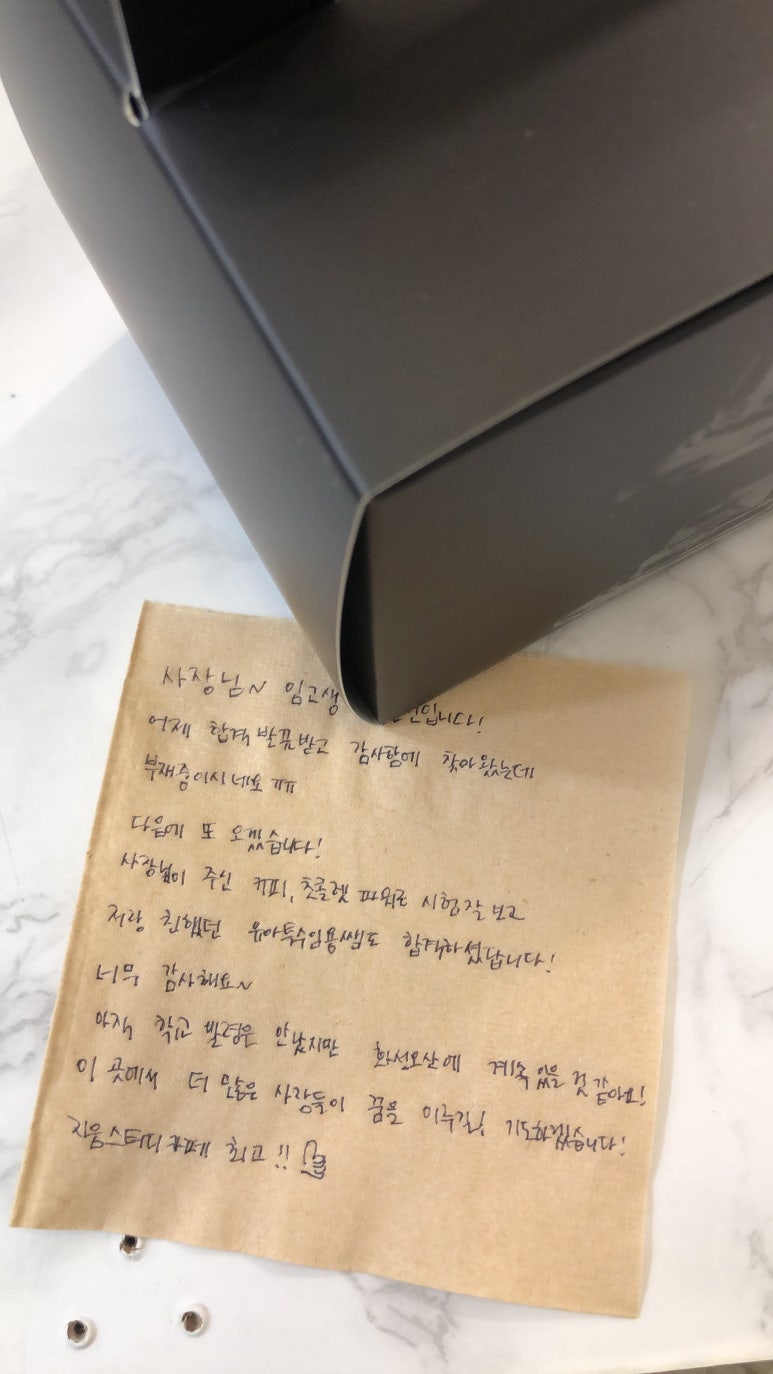 사장님~ 임고생 인입니다!
어제 합격 발표받고 감사함에 찾아왔는데
부재중이시네요 ㅠㅠ
다음에 또 오겠습니다!
사장님이 주신 커피, 초콜렛 파워로 시험 잘 보고
저랑 친했던 유아특수임용쌤도 합격하셨답니다!
너무 감사해요~
아직 학교 발령은 안났지만 화성오산에 계속 있을 것 같아요!
이 곳에서 더 많은 사람들이 꿈을 이루길! 기도하겠습니다!
지움스터디카페 최고!!